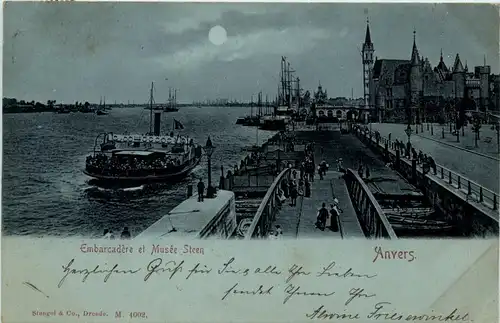 Embarcadère et Musée Steen
Anvers.
Herzlichen Gruß für Sie alle Ihr Lieben
sendet Ihnen Ihr
Stengel & Co., Dresde. M. 4002.